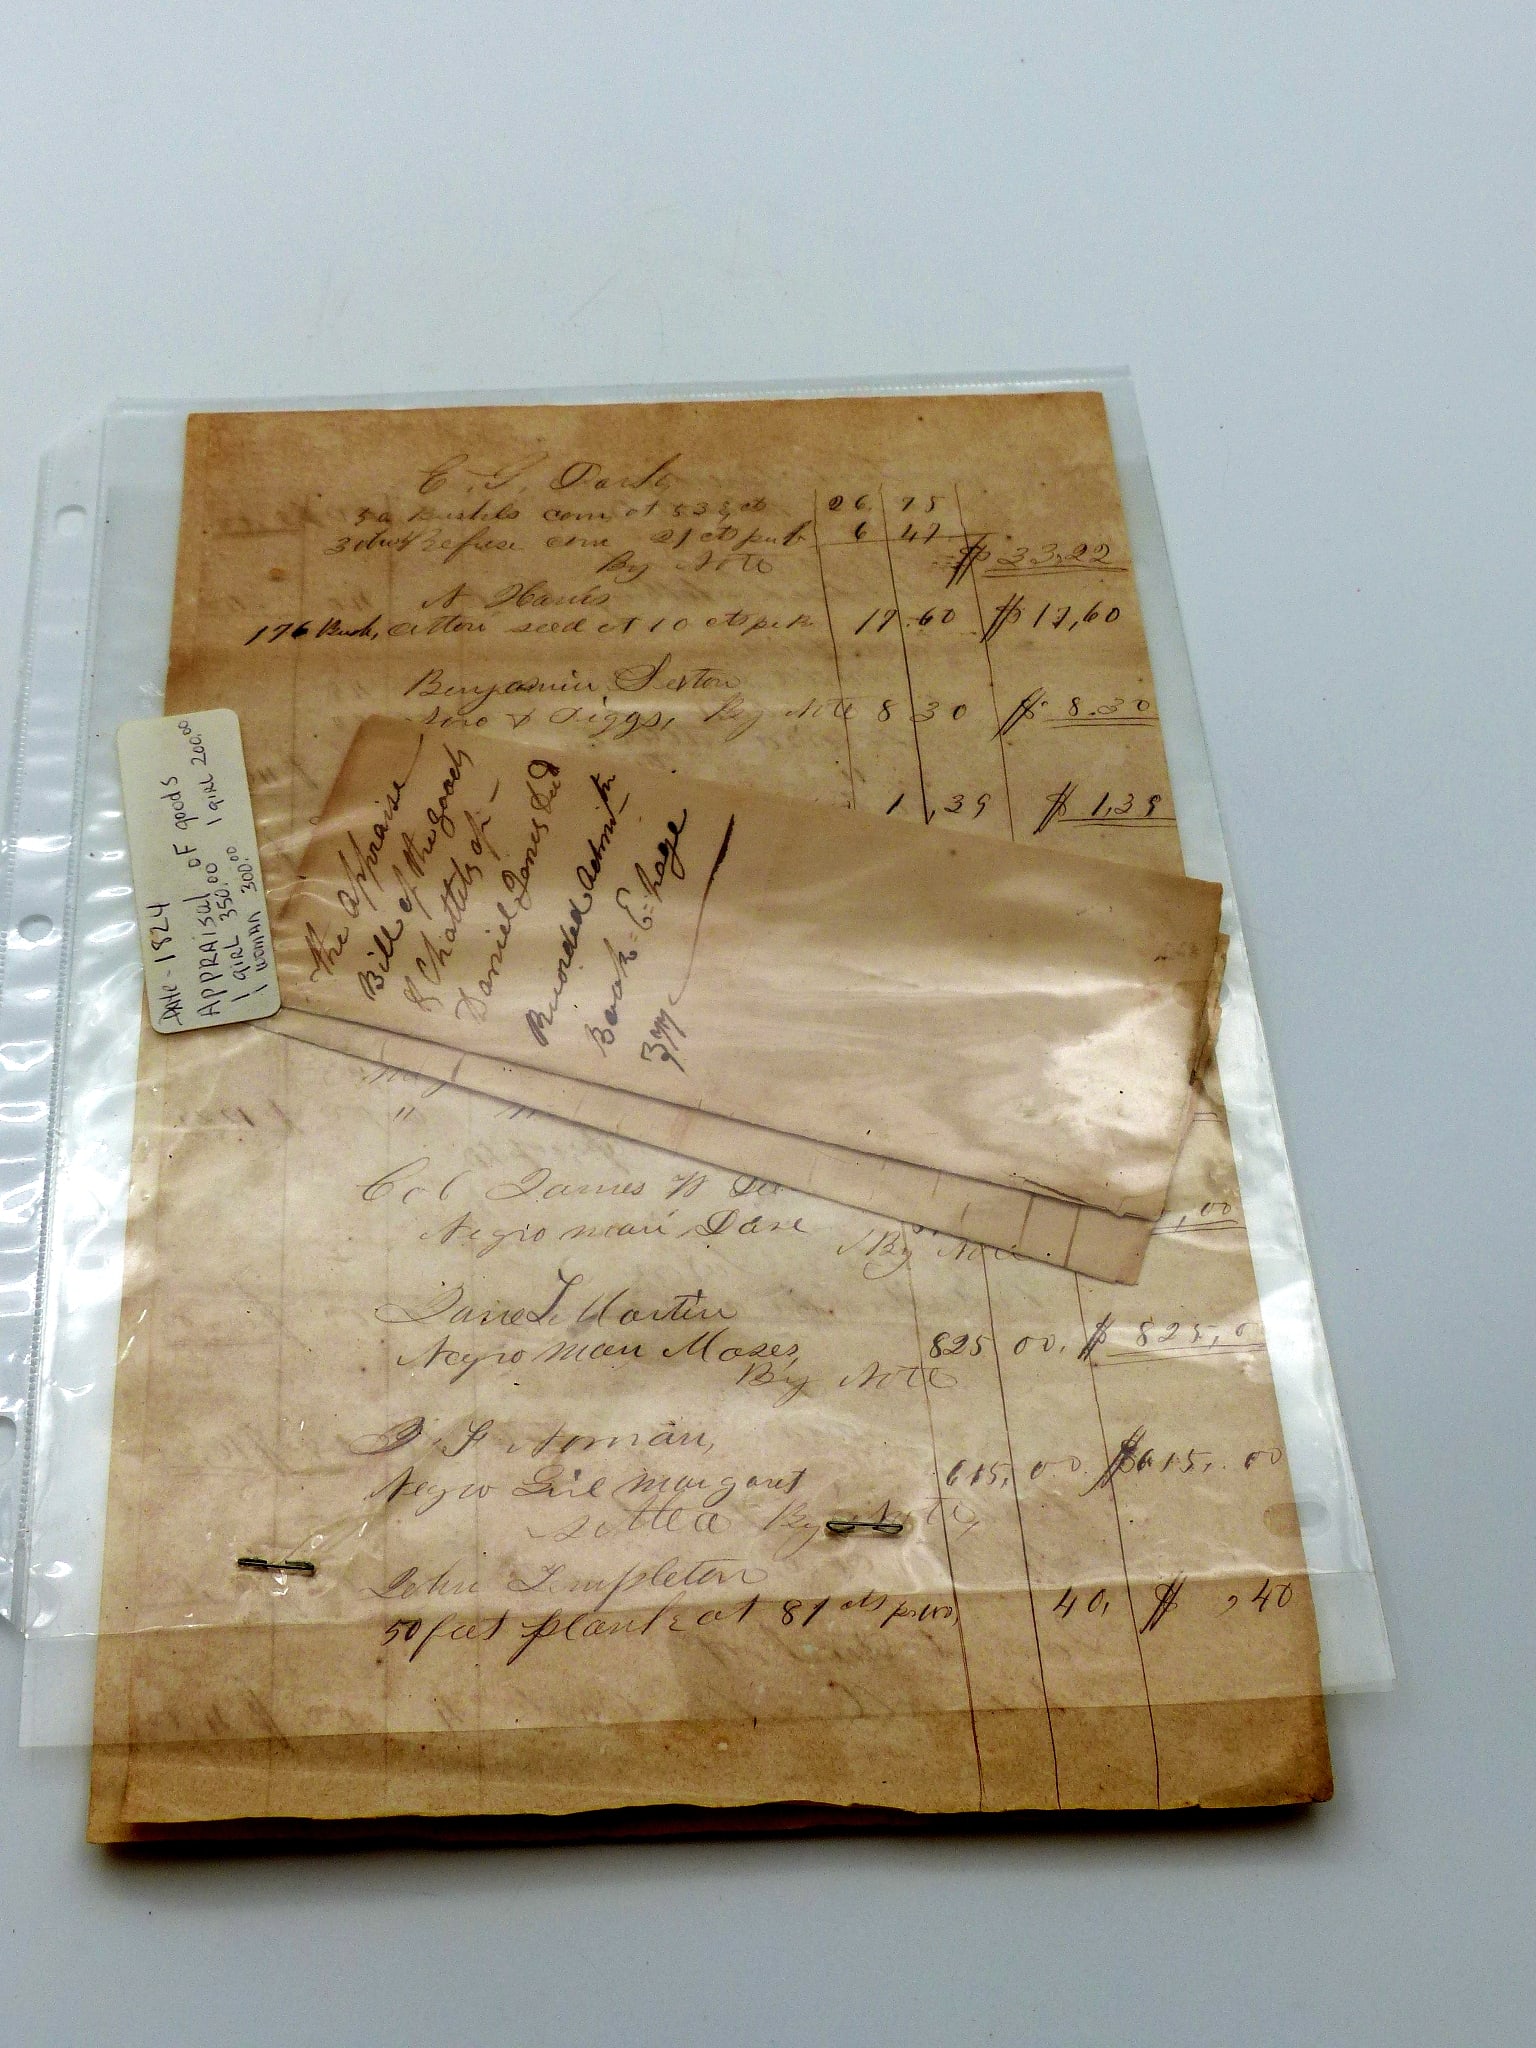 50 Bushels corn at 53½ ct 26 75
Refuse corn 21 cts per b 6 47
By Note $ 33,22
N Harris
176 Bush, Cotton seed at 10 cts per 17.60 $ 17,60
Benjamin Sexton
& Piggs, By Note 8 30 $ 8.30
1,39 $ 1,39
Date - 1824
APPRAISAL OF goods
1 girl 350.00 1 girl 200.00
1 woman 300.00
The appraise
Bill of the goods
& Chattels of
Daniel Jones Dcd
Recorded Admitn
Book = E = page
Col James W
Negro man, Dave By Note ,00
Martin
Negro man Moses, 825 00, $ 825,0
By Note
F Norman,
Negro Girl Margaret 615, 00 $ 615,.00
By Note,
John Templeton
50 feet plank at 81 cts 40, $ ,40